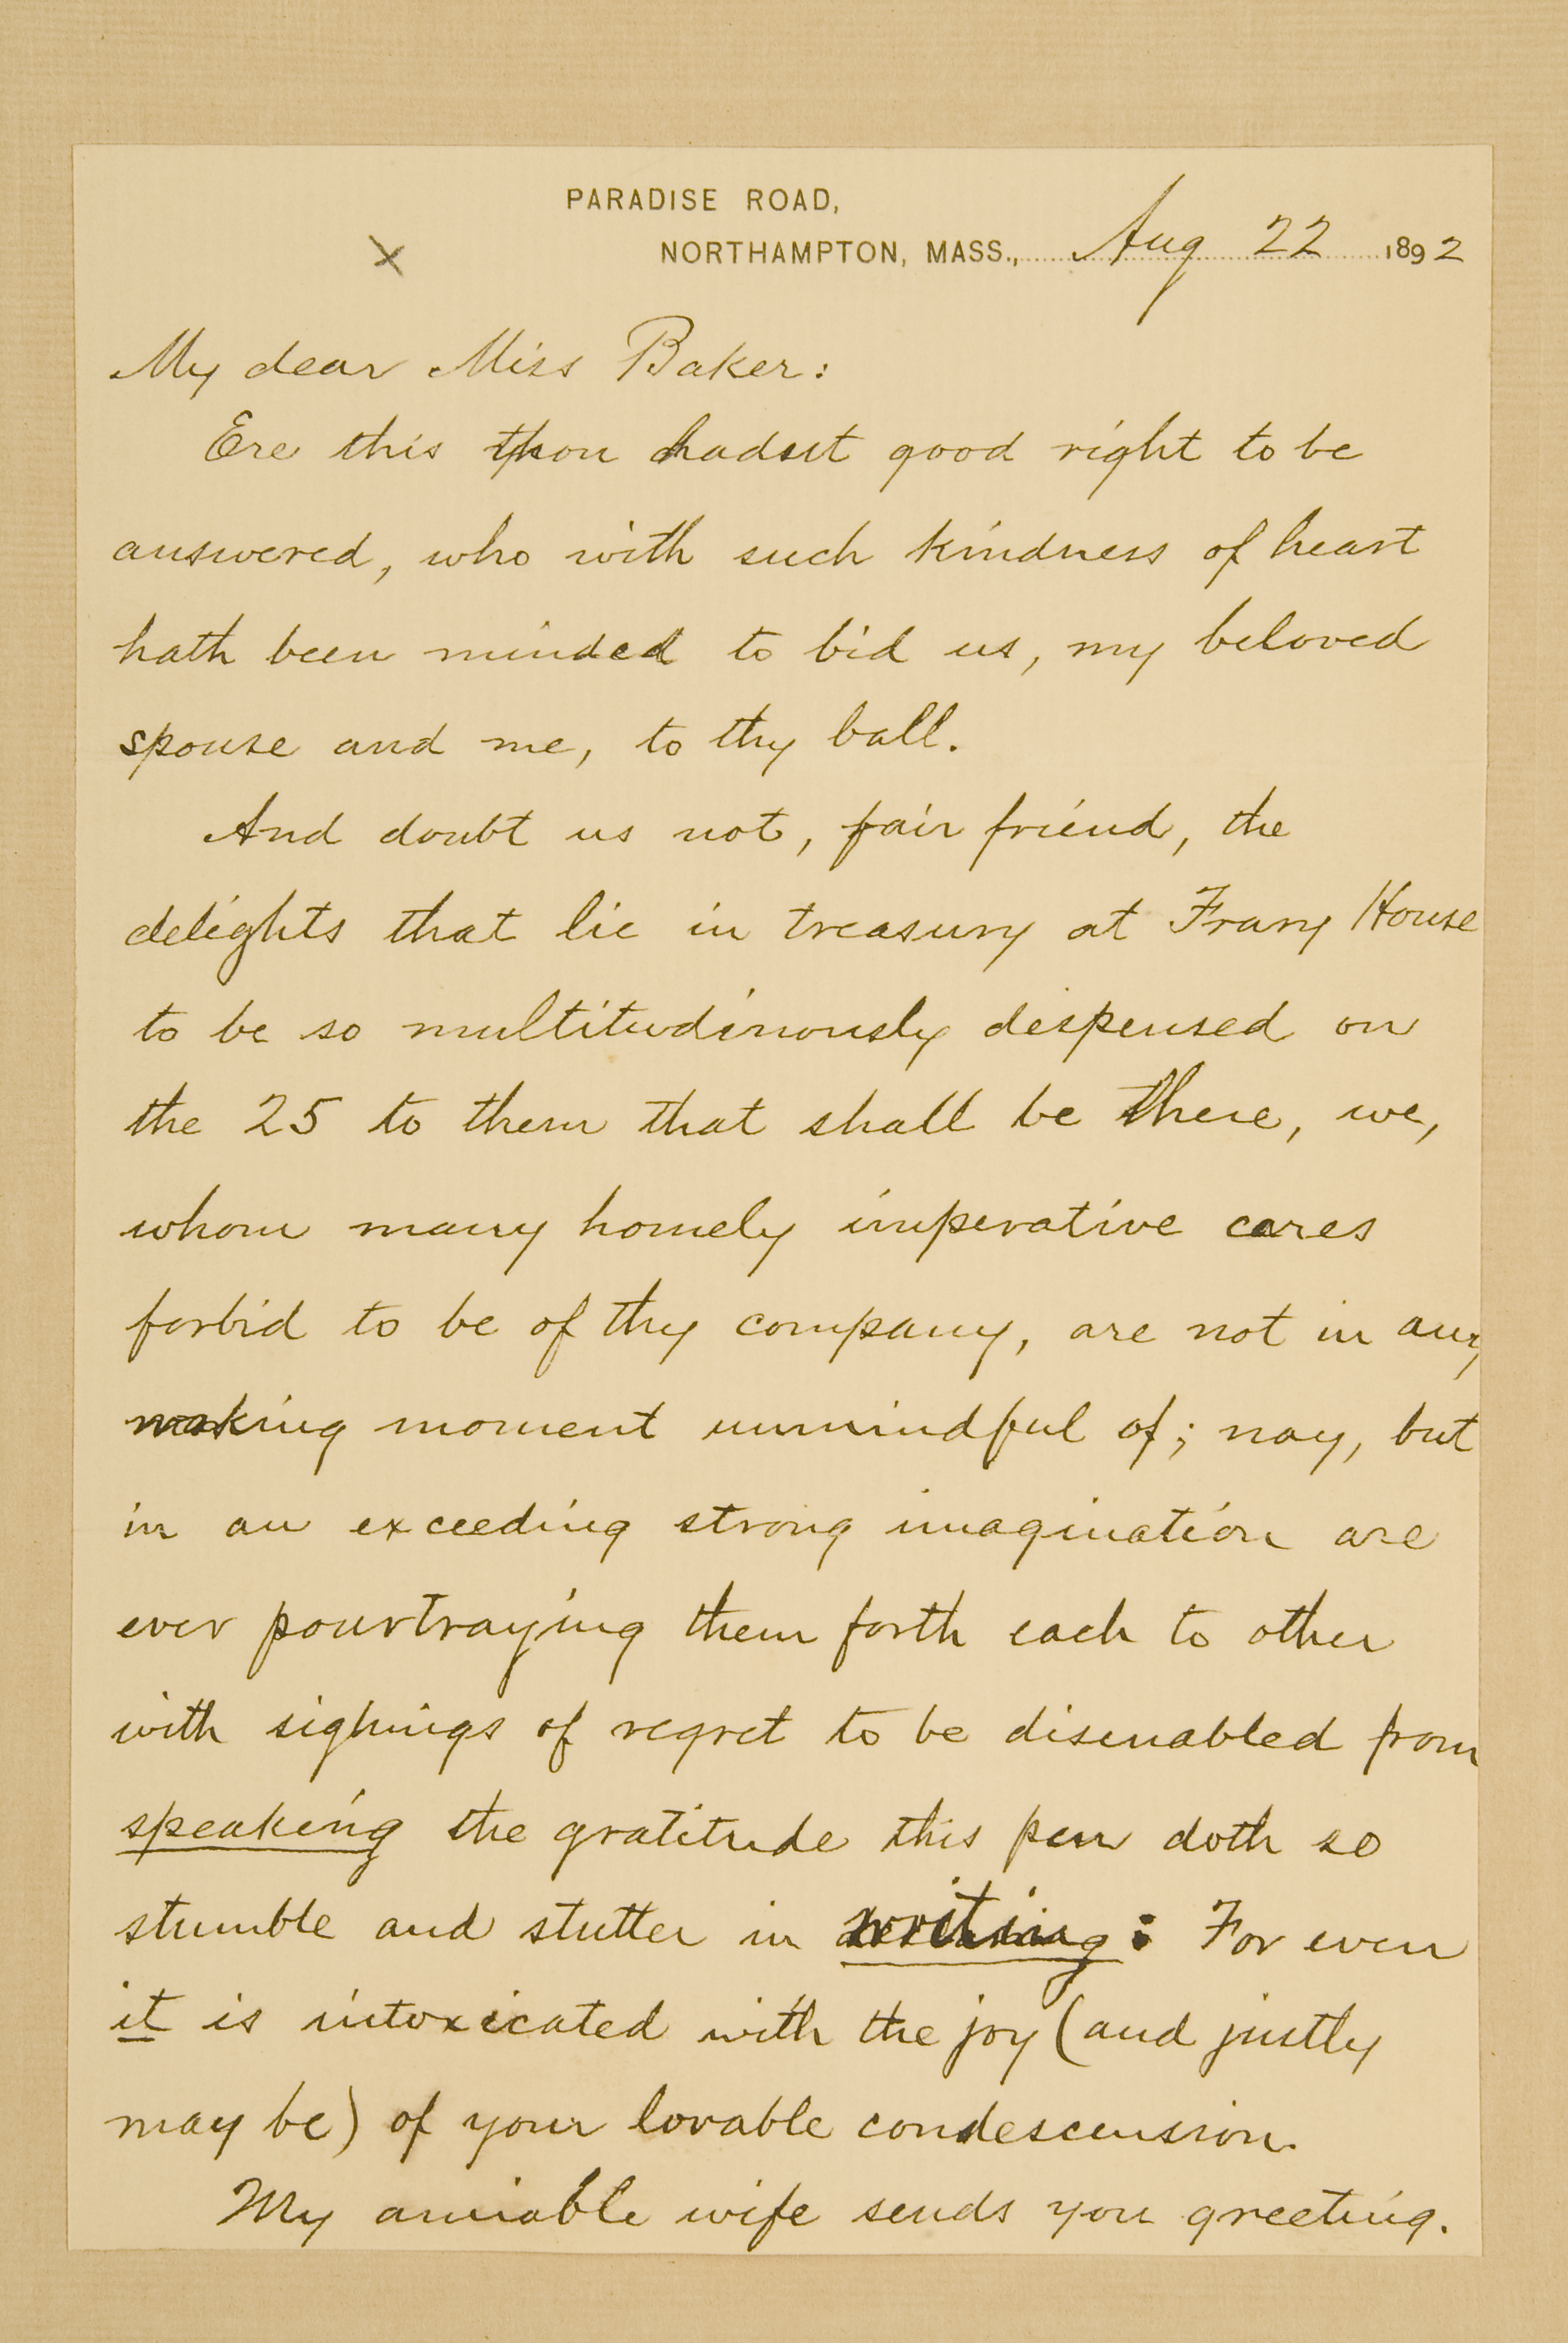 PARADISE ROAD,
NORTHAMPTON, MASS., Aug 22 1892
x
My dear Miss Baker:
Ere this thou hadst good right to be
answered, who with such kindness of heart
hath been minded to bid us, my beloved
spouse and me, to thy ball.
And doubt us not, fair friend, the
delights that lie in treasury at Frary House
to be so multitudinously dispensed on
the 25 to them that shall be there, we,
whom many homely imperative cares
forbid to be of thy company, are not in any
waking moment unmindful of; nay, but
in an exceeding strong imagination are
ever pourtraying them forth each to other
with sighings of regret to be disenabled from
speaking the gratitude this pen doth so
stumble and stutter in writing: For even
it is intoxicated with the joy (and justly
may be) of your lovable condescension.
My amiable wife sends you greeting.